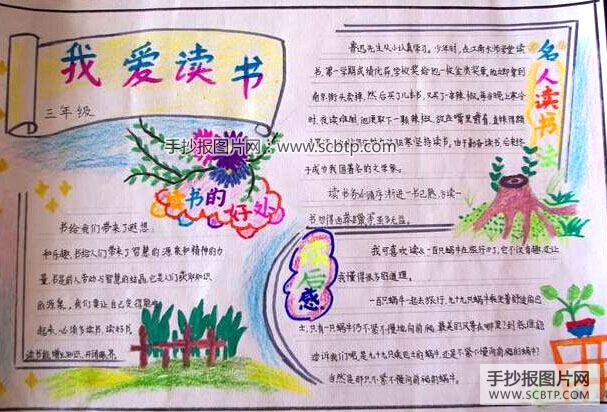 我爱读书
三年级
手抄报图片网：www.scbtp.com
读书的好处
书给我们带来了遐想
和乐趣，书给人们带来了智慧的源泉和精神的力
量。书是前人劳动与智慧的结晶，它是人们获取知识
的源泉。我们要让自己变得聪
起来，必须多读书，读好书。
读书能增长知识，开阔眼界。
名人读书
鲁迅先生从小认真学习。少年时，在江南水师学堂读
书，第一学期成绩优异，学校奖给他一枚金质奖章，他立即拿到
南京街头卖掉，然后买了几本书，又买了一串辣椒。每当晚上寒冷
时，夜读难耐，他便取下一颗辣椒，放在嘴里嚼着，直辣得额
坚持读书。由于勤奋读书，后来终
于成为我国著名的文学家。
读书务必循序渐进一书已熟，方读一
后感
我可喜欢读《一百只蜗牛在旅行》了，它不仅有趣，还让
我懂得很多的道理。
一百只蜗牛一起去旅行，九十九只蜗牛
士，只有一只蜗牛仍不紧不慢地向前爬，最美的风景在哪里？到底谁能
告诉我们呢，是九十九只乘巴士的蜗牛，还是不紧不慢向前爬的蜗牛？
当然是那只不紧不慢向前爬的蜗牛。
手抄报图片网
SCBTP.COM